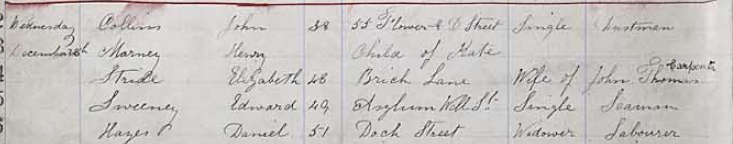 2 Wednesday Collins John 38 55 Flower & D Street Single Dustman
3 December 28th Marney Henry Child of Kate
4 Stride Elizabeth 48 Brick Lane Wife of John Thomas Carpenter
5 Sweeney Edward 49 Asylum Single Seaman
6 Hayes Daniel 51 Dock Street Widower Labourer